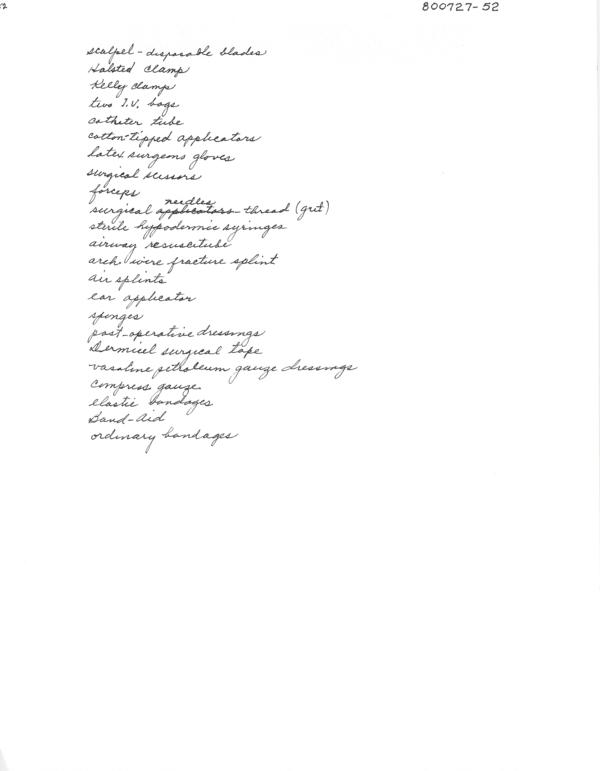 800727-52
scalpel - disposable blades
Halsted clamp
Kelly clamp
two I.V. bags
catheter tube
cotton-tipped applicators
latex surgeons gloves
surgical scissors
forceps
needles
surgical applicators - thread (gut)
sterile hypodermic syringes
airway resuscitube
arch wire fracture splint
air splints
ear applicator
sponges
post-operative dressings
Dermicel surgical tape
vasaline petroleum gauge dressings
compress gauze
elastic bandages
Band-Aid
ordinary bandages